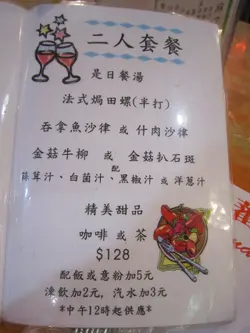 二人套餐
是日餐湯
法式焗田螺(半打)
吞拿魚沙律 或 什肉沙律
金菇牛柳 或 金菇扒石斑
配
茸汁、白菌汁、黑椒汁 或 洋葱汁
精美甜品
咖啡 或 茶
$128
配飯或意粉加5元
凍飲加2元, 汽水加3元
*中午12時起供應*